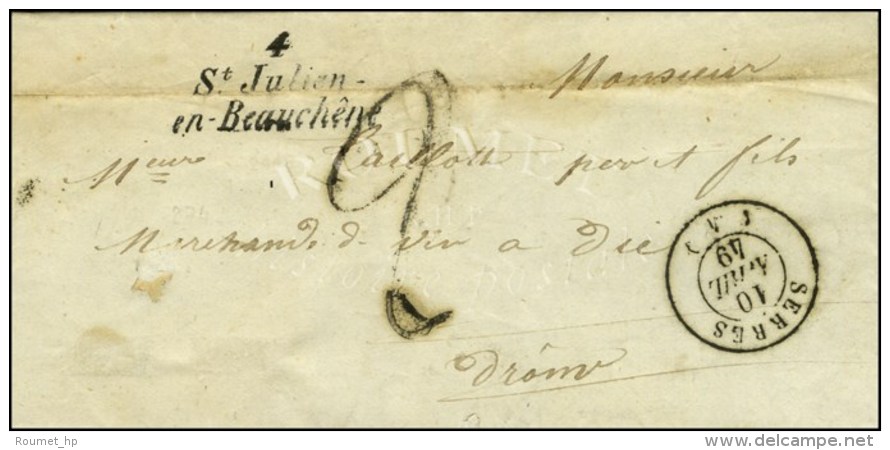 4
St Julien-
en-Beauchêne
Monsieur
Taillott per et fils
Marchands de vin a Die
Drôme
2
SERRES
10
AVRIL
49
ROUMET
Roumet_hp
delcampe.net